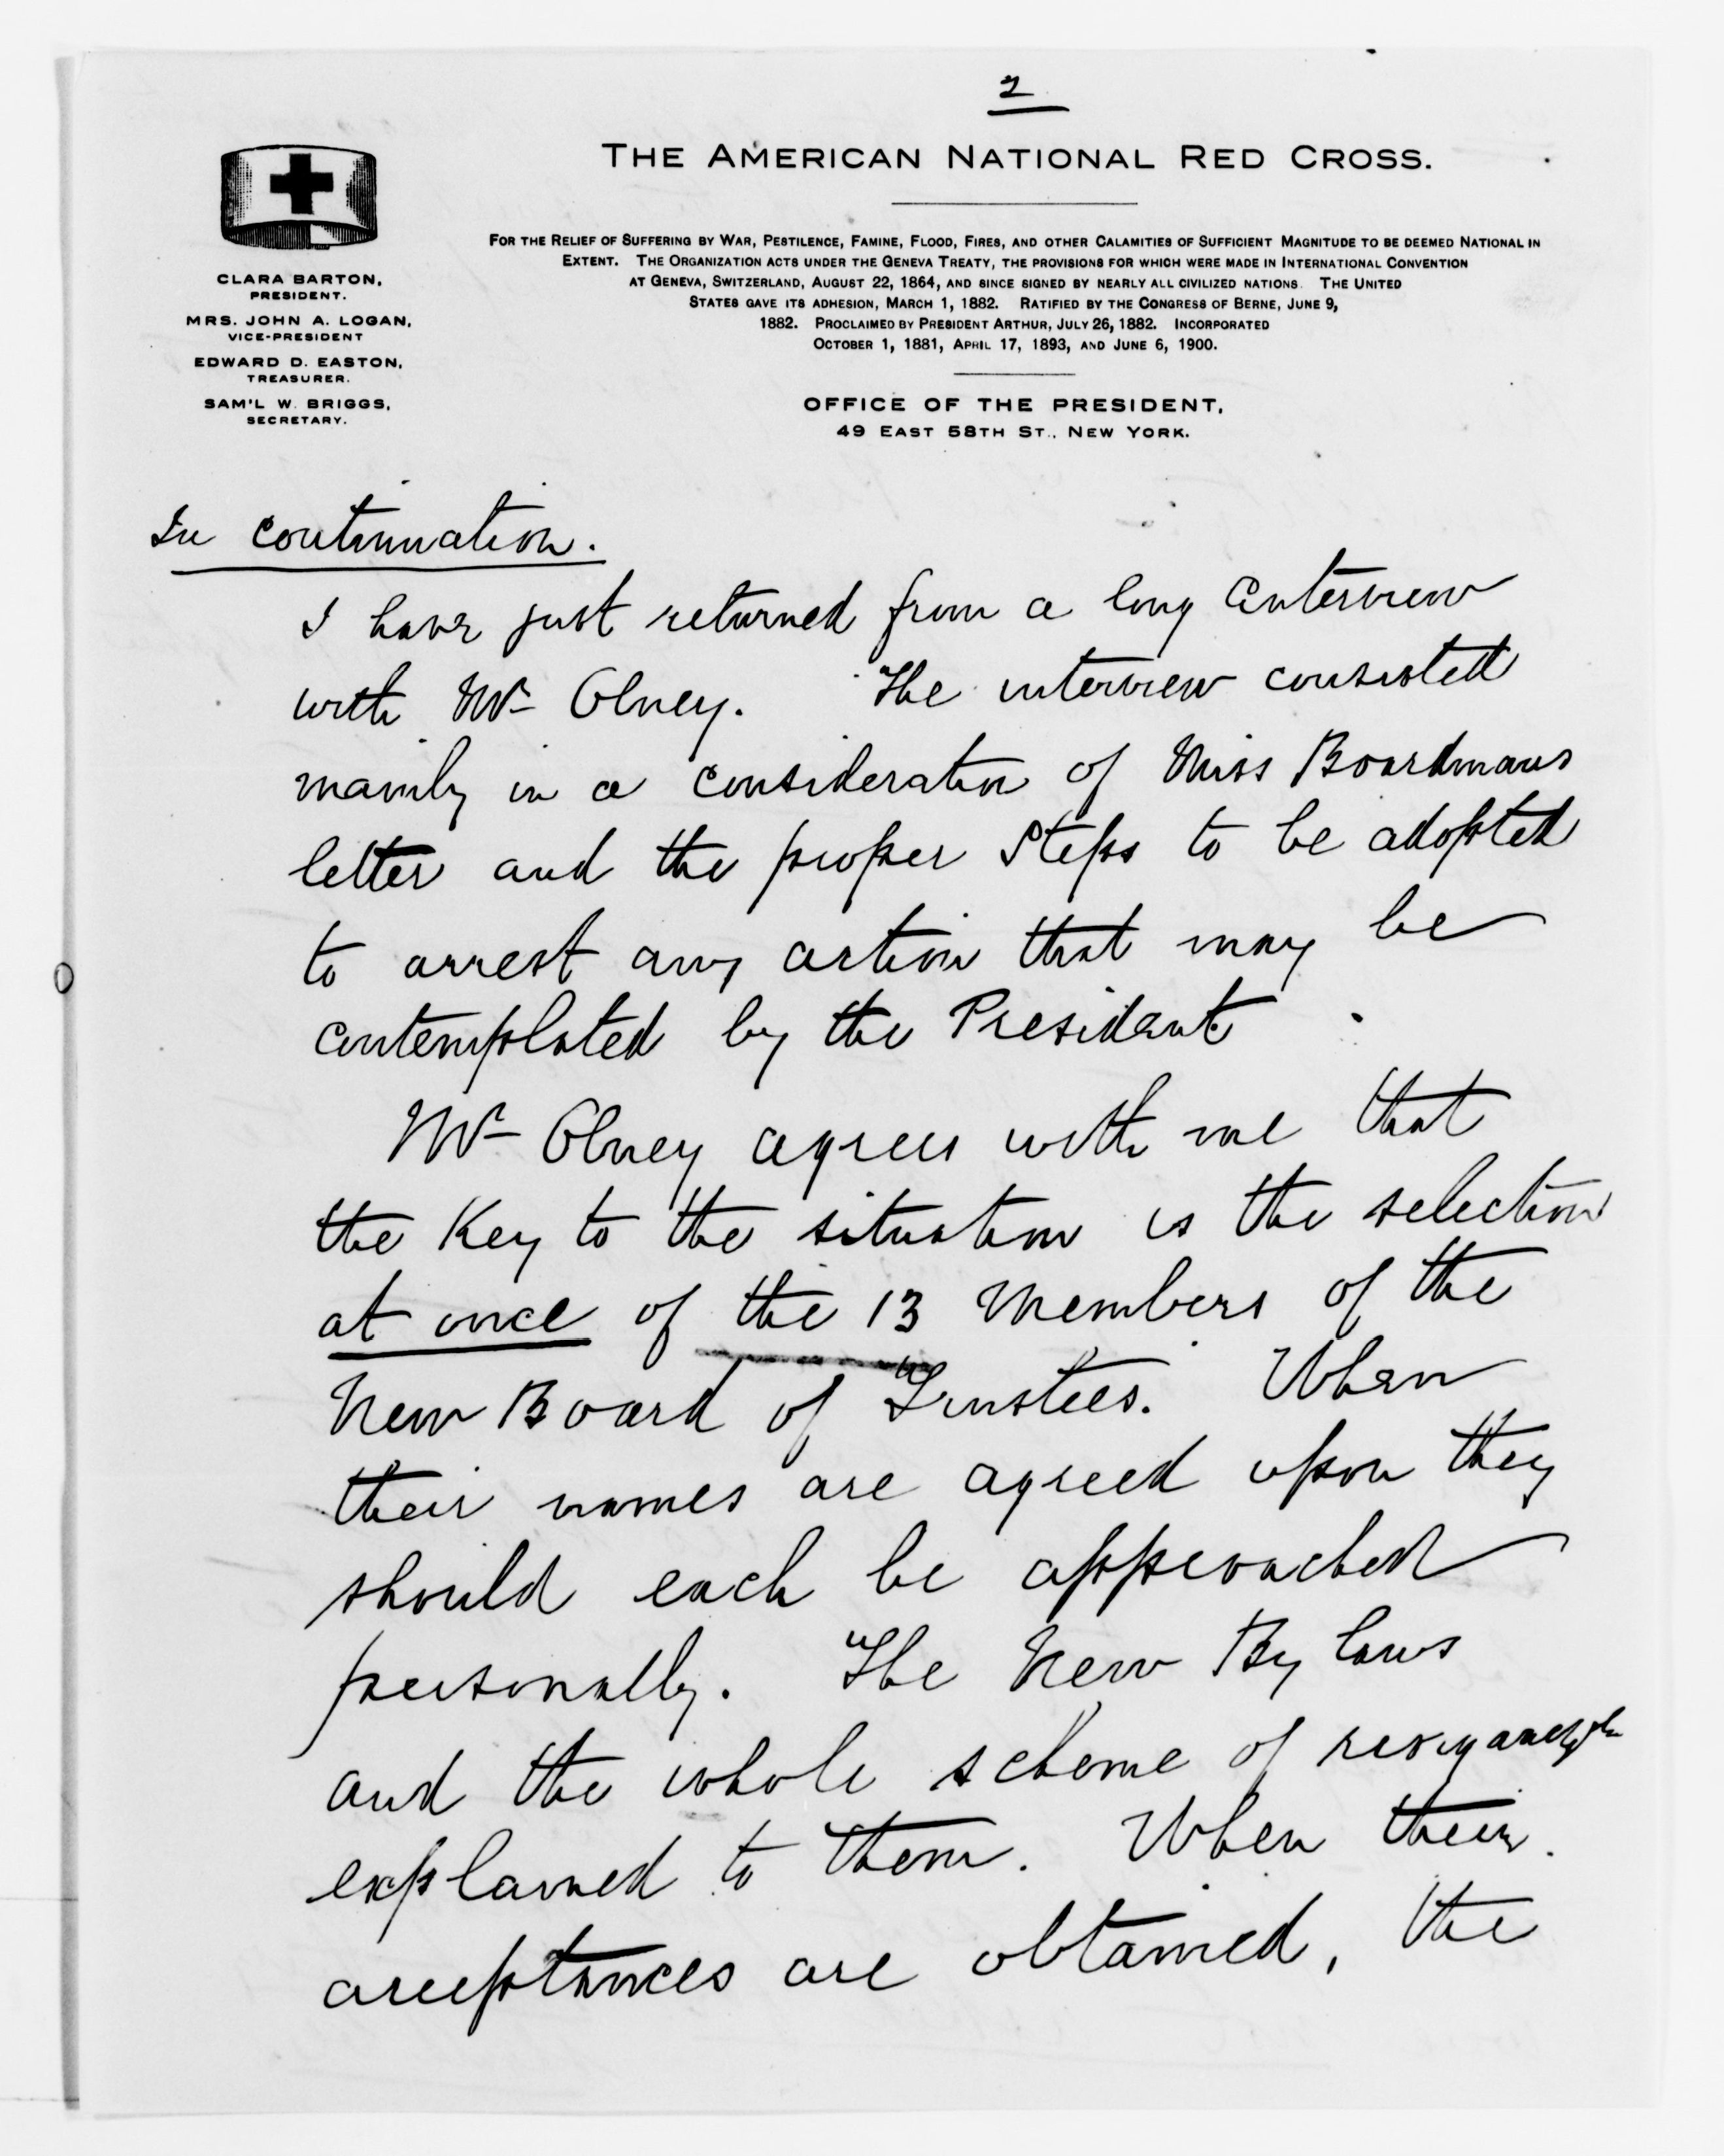 2
THE AMERICAN NATIONAL RED CROSS.
FOR THE RELIEF OF SUFFERING BY WAR, PESTILENCE, FAMINE, FLOOD, FIRES, AND OTHER CALAMITIES OF SUFFICIENT MAGNITUDE TO BE DEEMED NATIONAL IN
EXTENT. THE ORGANIZATION ACTS UNDER THE GENEVA TREATY, THE PROVISIONS FOR WHICH WERE MADE IN INTERNATIONAL CONVENTION
AT GENEVA, SWITZERLAND, AUGUST 22, 1864, AND SINCE SIGNED BY NEARLY ALL CIVILIZED NATIONS. THE UNITED
STATES GAVE ITS ADHESION, MARCH 1, 1882. RATIFIED BY THE CONGRESS OF BERNE, JUNE 9,
1882. PROCLAIMED BY PRESIDENT ARTHUR, JULY 26, 1882. INCORPORATED
OCTOBER 1, 1881, APRIL 17, 1893, AND JUNE 6, 1900.
CLARA BARTON,
PRESIDENT.
MRS. JOHN A. LOGAN,
VICE-PRESIDENT
EDWARD D. EASTON,
TREASURER.
SAM'L W. BRIGGS,
SECRETARY.
OFFICE OF THE PRESIDENT,
49 EAST 58TH ST., NEW YORK.
In continuation.
I have just returned from a long interview
with Mr Olney. The interview consisted
mainly in a consideration of Miss Boardmans
letter and the proper steps to be adopted
to arrest any action that may be
contemplated by the President
Mr Olney agrees with me that
the Key to the situation is the selection
at once of the 13 members of the
New Board of Trustees. When
their names are agreed upon they
should each be approached
personally. The New By laws
and the whole scheme of reorganiztn
explained to them. When their
acceptances are obtained, the